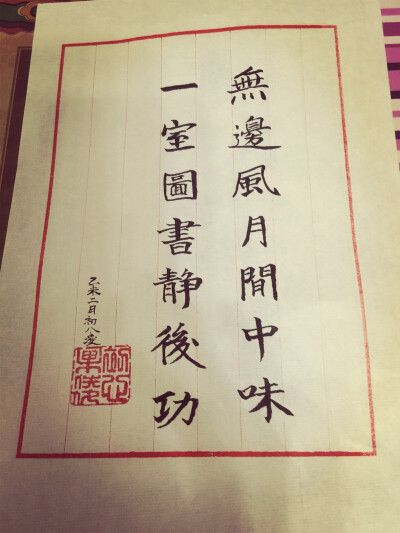 無邊風月閒中味
一室圖書静後功
乙未二月初八夜